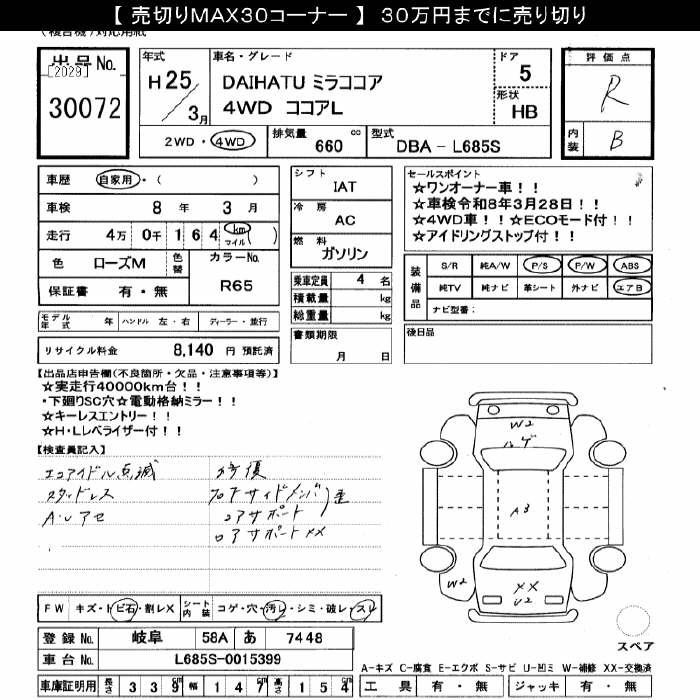 【 売切りMAX30コーナー 】 30万円までに売り切り
出品No.
[2029]
30072
年式
H 25 / 3月
車名・グレード
DAIHATU ミラココア
4WD ココアL
ドア
5
形状
HB
評価点
R
内装
B
2WD・4WD
排気量 660 cc
型式 DBA - L685S
車歴 自家用・( )
車検 8 年 3 月
走行 4万 0千 1 6 4 km マイル ( )
色 ローズM 色替
カラーNo. R65
保証書 有・無
シフト
IAT
冷房
AC
燃料
ガソリン
乗車定員 4 名
積載量 kg
総重量 kg
書類期限
月 日
セールスポイント
☆ワンオーナー車！！
☆車検令和8年3月28日！！
☆4WD車！！☆ECOモード付！！
☆アイドリングストップ付！！
装備品
S/R 純A/W P/S P/W ABS
純TV 純ナビ 革シート 外ナビ エアB
ナビ型番:
後日品
モデル年式 年 ハンドル 左・右 ディーラー・並行
リサイクル料金 8,140 円 預託済
【出品店申告欄(不良箇所・欠品・注意事項等)】
☆実走行40000km台！！
・下廻りSC穴☆電動格納ミラー！！
☆キーレスエントリー！！
☆H・Lレベライザー付！！
【検査員記入】
エコアイドル点滅
スタッドレス
A・Uアセ
修復
フロアサイドメンバ
コアサポート
ロアサポートXX
W2
ハゲ
A3
W2
XX
U2
スペア
FW キズ・トビ石・割レX
シート内装 コゲ・穴・汚レ・シミ・破レ・スレ
登録No. 岐阜 58A あ 7448
車台No. L685S-0015399
車庫証明用 長さ 3 3 9 幅 1 4 7 高さ 1 5 4
A-キズ C-腐食 E-エクボ S-サビ U-凹ミ W-補修 XX-交換済
工具 有・無 ジャッキ 有・無